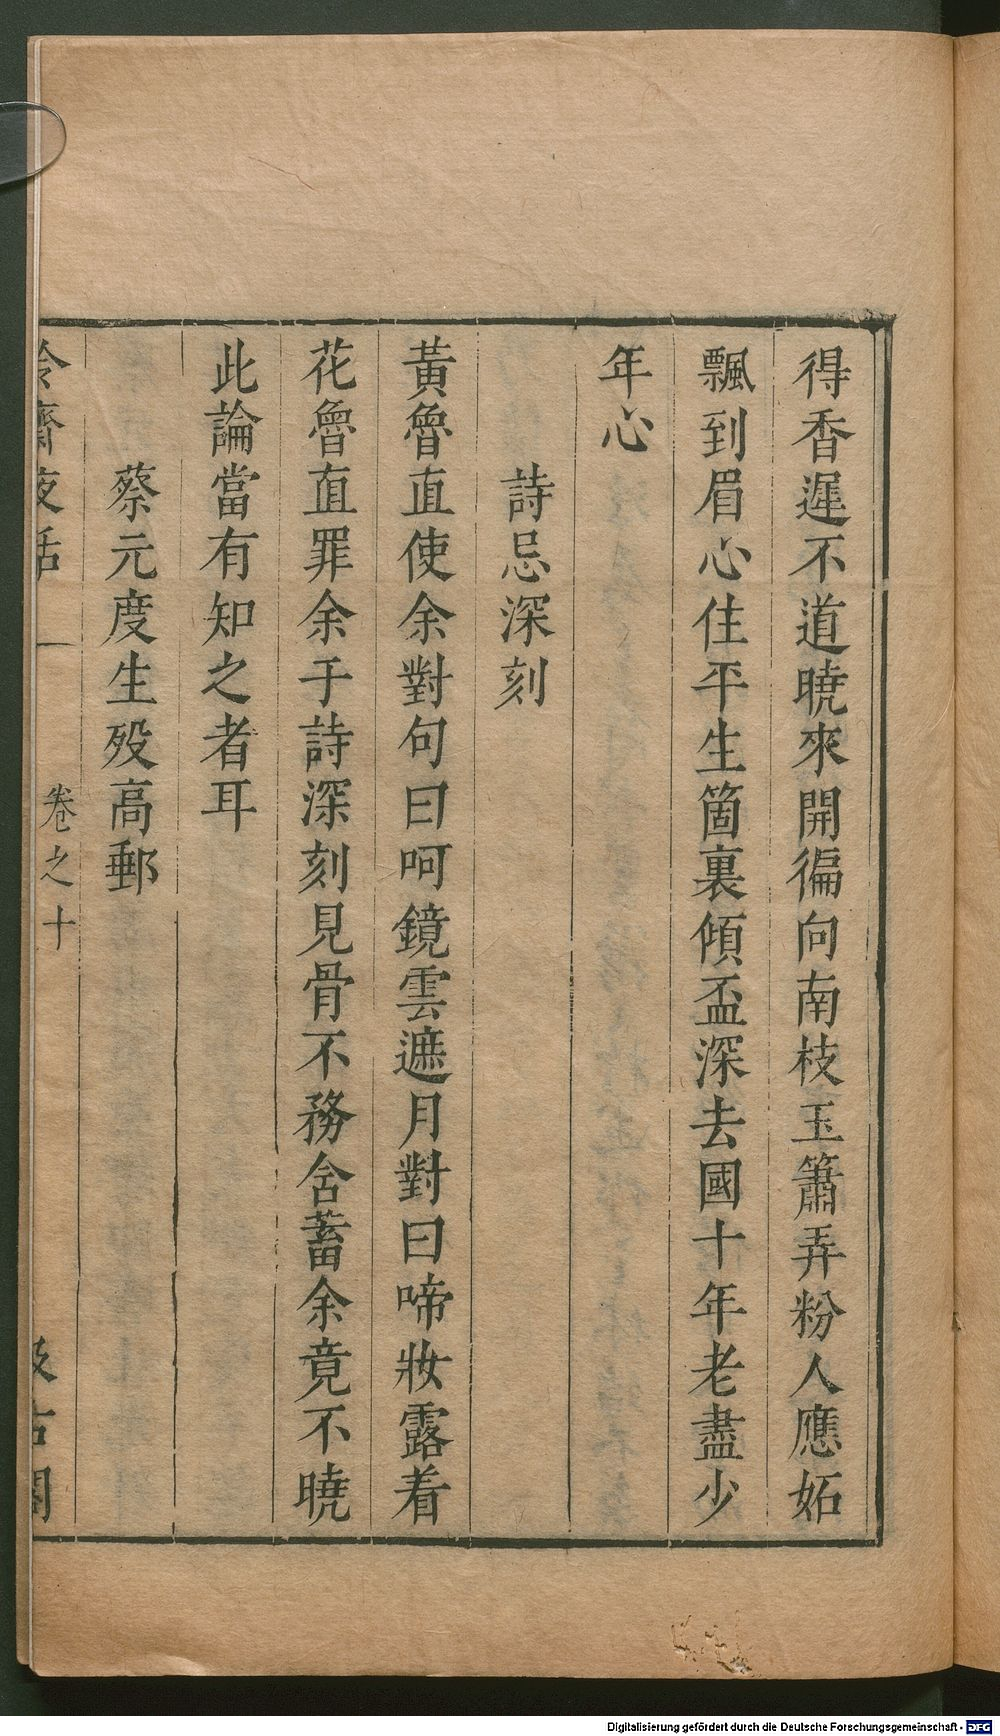 得香遲不道曉來開徧向南枝玉簫弄粉人應妬
飄到眉心住平生箇裏傾盃深去國十年老盡少
年心
詩忌深刻
黃魯直使余對句曰呵鏡雲遮月對曰啼妝露着
花魯直罪余于詩深刻見骨不務含蓄余竟不曉
此論當有知之者耳
蔡元度生歿高郵
冷齋夜話 一 卷之十 汲古閣
Digitalisierung gefördert durch die Deutsche Forschungsgemeinschaft - DFG